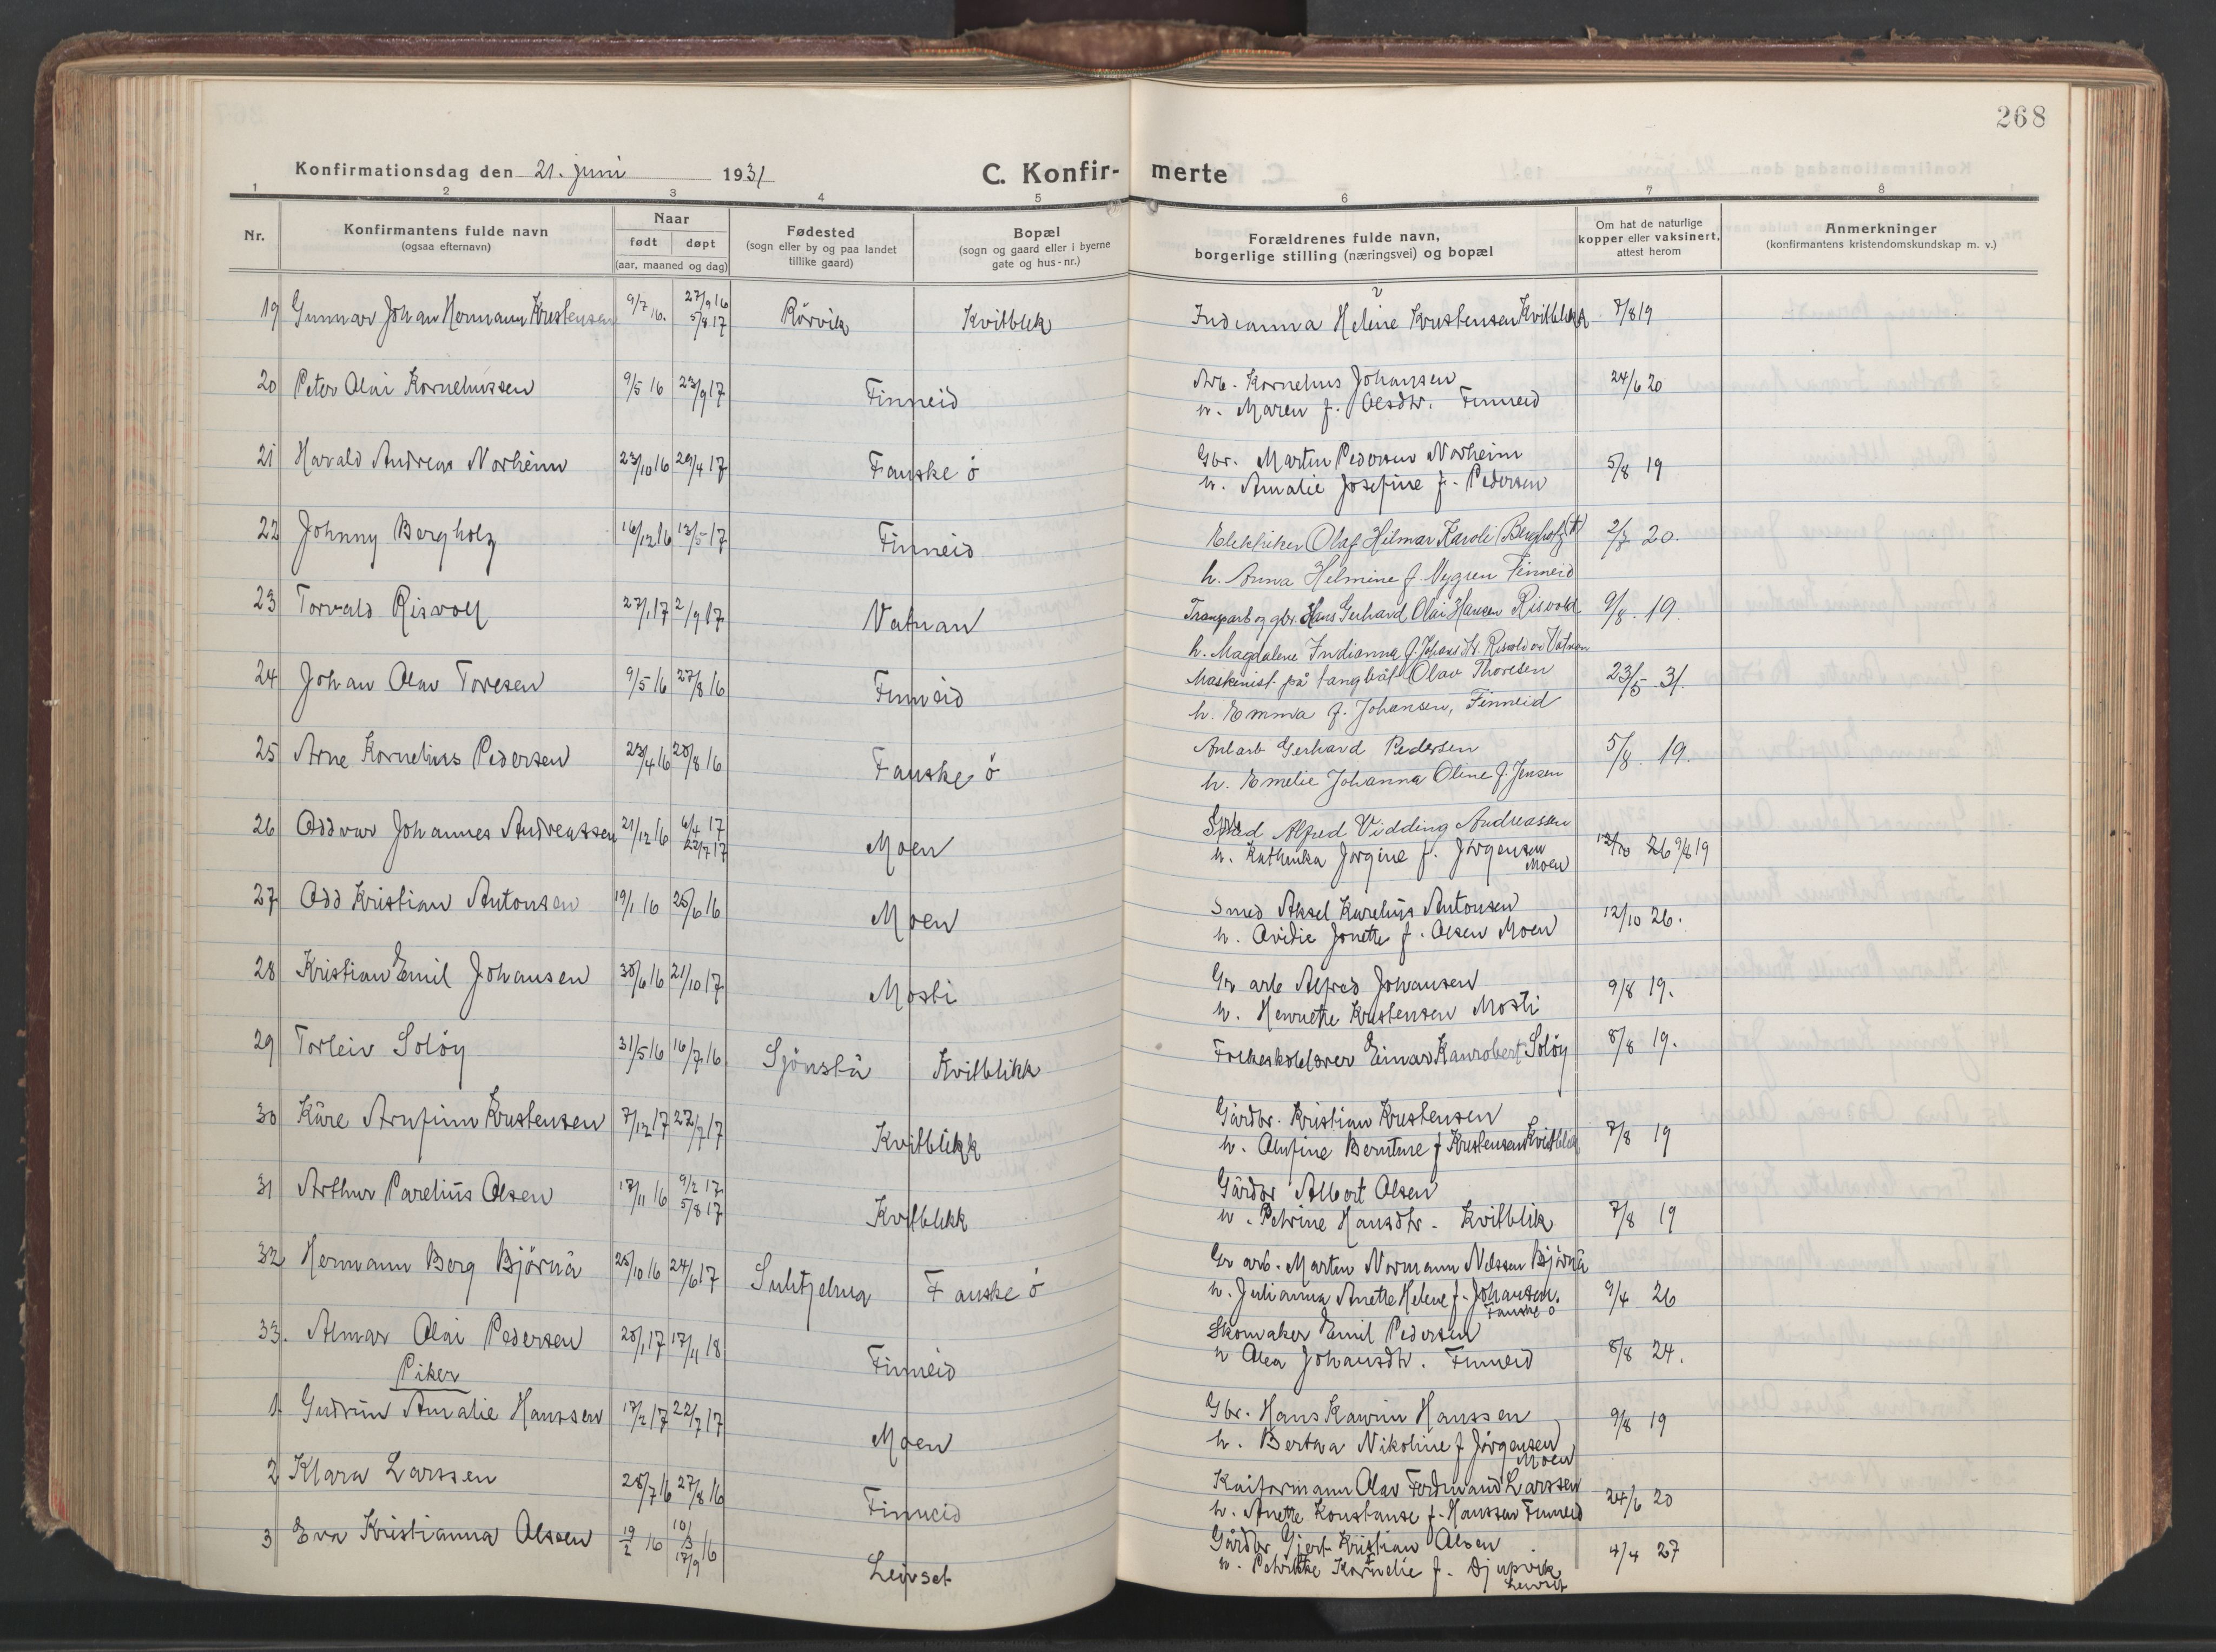 268
Konfirmationsdag den 21. juni 1931 C. Konfir- merte
1 2 3 4 5 6 7 8
Nr. Konfirmantens fulde navn (ogsaa efternavn) Naar født døpt (aar, maaned og dag) Fødested (sogn eller by og paa landet tillike gaard) Bopæl (sogn og gaard eller i byerne gate og hus-nr.) Forældrenes fulde navn, borgerlige stilling (næringsvei) og bopæl Om hat de naturlige kopper eller vaksinert, attest herom Anmerkninger (konfirmantens kristendomskundskap m. v.)
19 Gunnar Johan Hermann Kristensen 9/7 16. 27/9 16 5/8 17 Rörvik Kvitblik Indianna Helene Kristensen Kvitblikk 7/8 19
20 Peter Olai Korneliussen 9/5 16 23/9 17 Finneid Arb. Kornelius Johansen 24/6 20
h. Maren f. Olsdtr. Finneid
21 Harald Andreas Norheim 23/10 16 29/4 17 Fauske ö Gbr. Martin Pedersen Norheim 5/8 19
h. Amalie Josefine f. Pedersen
22 Johnny Bergholz 16/12 16 13/5 17 Finneid Elektriker Olaf Hilmar Karoli Bergholtz 2/7 20.
h. Anna Helmine f. Nygren Finneid
23 Torvald Risvoll 27/1 17 2/9 17 Vatnan Transparb og gbr. Hans Gerhard Olai Hansen Risvold 9/8. 19.
h. Magdalene Indianna f. Johans Hr. Risvold Vatnan
24 Johan Olav Toresen 9/5 16 27/8 16 Finneid Maskinist på tangbåt Olav Thoresen 23/5 31.
h. Emma f. Johansen, Finneid
25 Arne Kornelius Pedersen 23/4 16 20/8 16 Fauske ö Anlarb Gerhard Pedersen 5/8. 19.
h. Emelie Johanna Oline f. Jensen
26 Oddvar Johannes Andreassen 21/12 16 6/4 17 22/7 17 Moen Alfred Vidding Andreassen
h. Kathinka Jorgine f. Jörgensen Moen 12/10 26 9/8 19
27 Odd Kristian Antonsen 19/1 16 25/6 16 Moen Smed Aksel Karelius Antonsen 12/10 26.
h. Ovidie Jonette f. Olsen Moen
28 Kristian Emil Johansen 30/6 16 21/10 17 Mosti Gr arb Alfred Johansen 9/8 19.
h. Henriette Kristensen Mosti
29 Torleiv Solöy 31/5 16 16/7 16 Sjönstå Kvitblikk Folkeskolelærer Einar Kanrobert Solöy 8/8 19.
30 Kåre Arnfinn Kristensen 7/12 17 22/7 17 Kvitblikk Gårdbr. Kristian Kristensen 7/8 19
h. Olufine Berntine f Kristensen Kvitblik
31 Arthur Parelius Olsen 17/11 16 9/2 17 5/8 17 Kvitblikk Gårdbr Albert Olsen 7/8 19
h. Petrine Hansdtr. Kvitblik
32 Hermann Berg Björnå 25/10 16 24/6 17 Sulitjelma Fauske ö Gr arb. Martin Normann Nilssen Björnå 9/4 26
h. Julianna Anette Helene f. Johansen. Fauske ö
33. Almar Olai Pedersen 28/1 17 17/11 18 Finneid Skomaker Emil Pedersen 8/8 24.
h Olea Johansdtr. Finneid
Piker
1. Gudrun Amalie Hanssen 17/2 17 22/7 17 Moen Gbr. Hans Kawin Hanssen 9/8 19
h. Bertea Nikoline f Jörgensen Moen
2 Klara Larssen 28/7 16 27/8 16 Finneid Kaiformann Olav Ferdinand Larssen 24/6 20
h. Anette Konstanse f. Hanssen Finneid
3 Eva Kristianna Olsen 19/2 16 10/3 17/9 16 Leivset Gårdbr Gjert Kristian Olsen 4/4 27
h. Petrikke Kornelie f. Djupvik Leivset